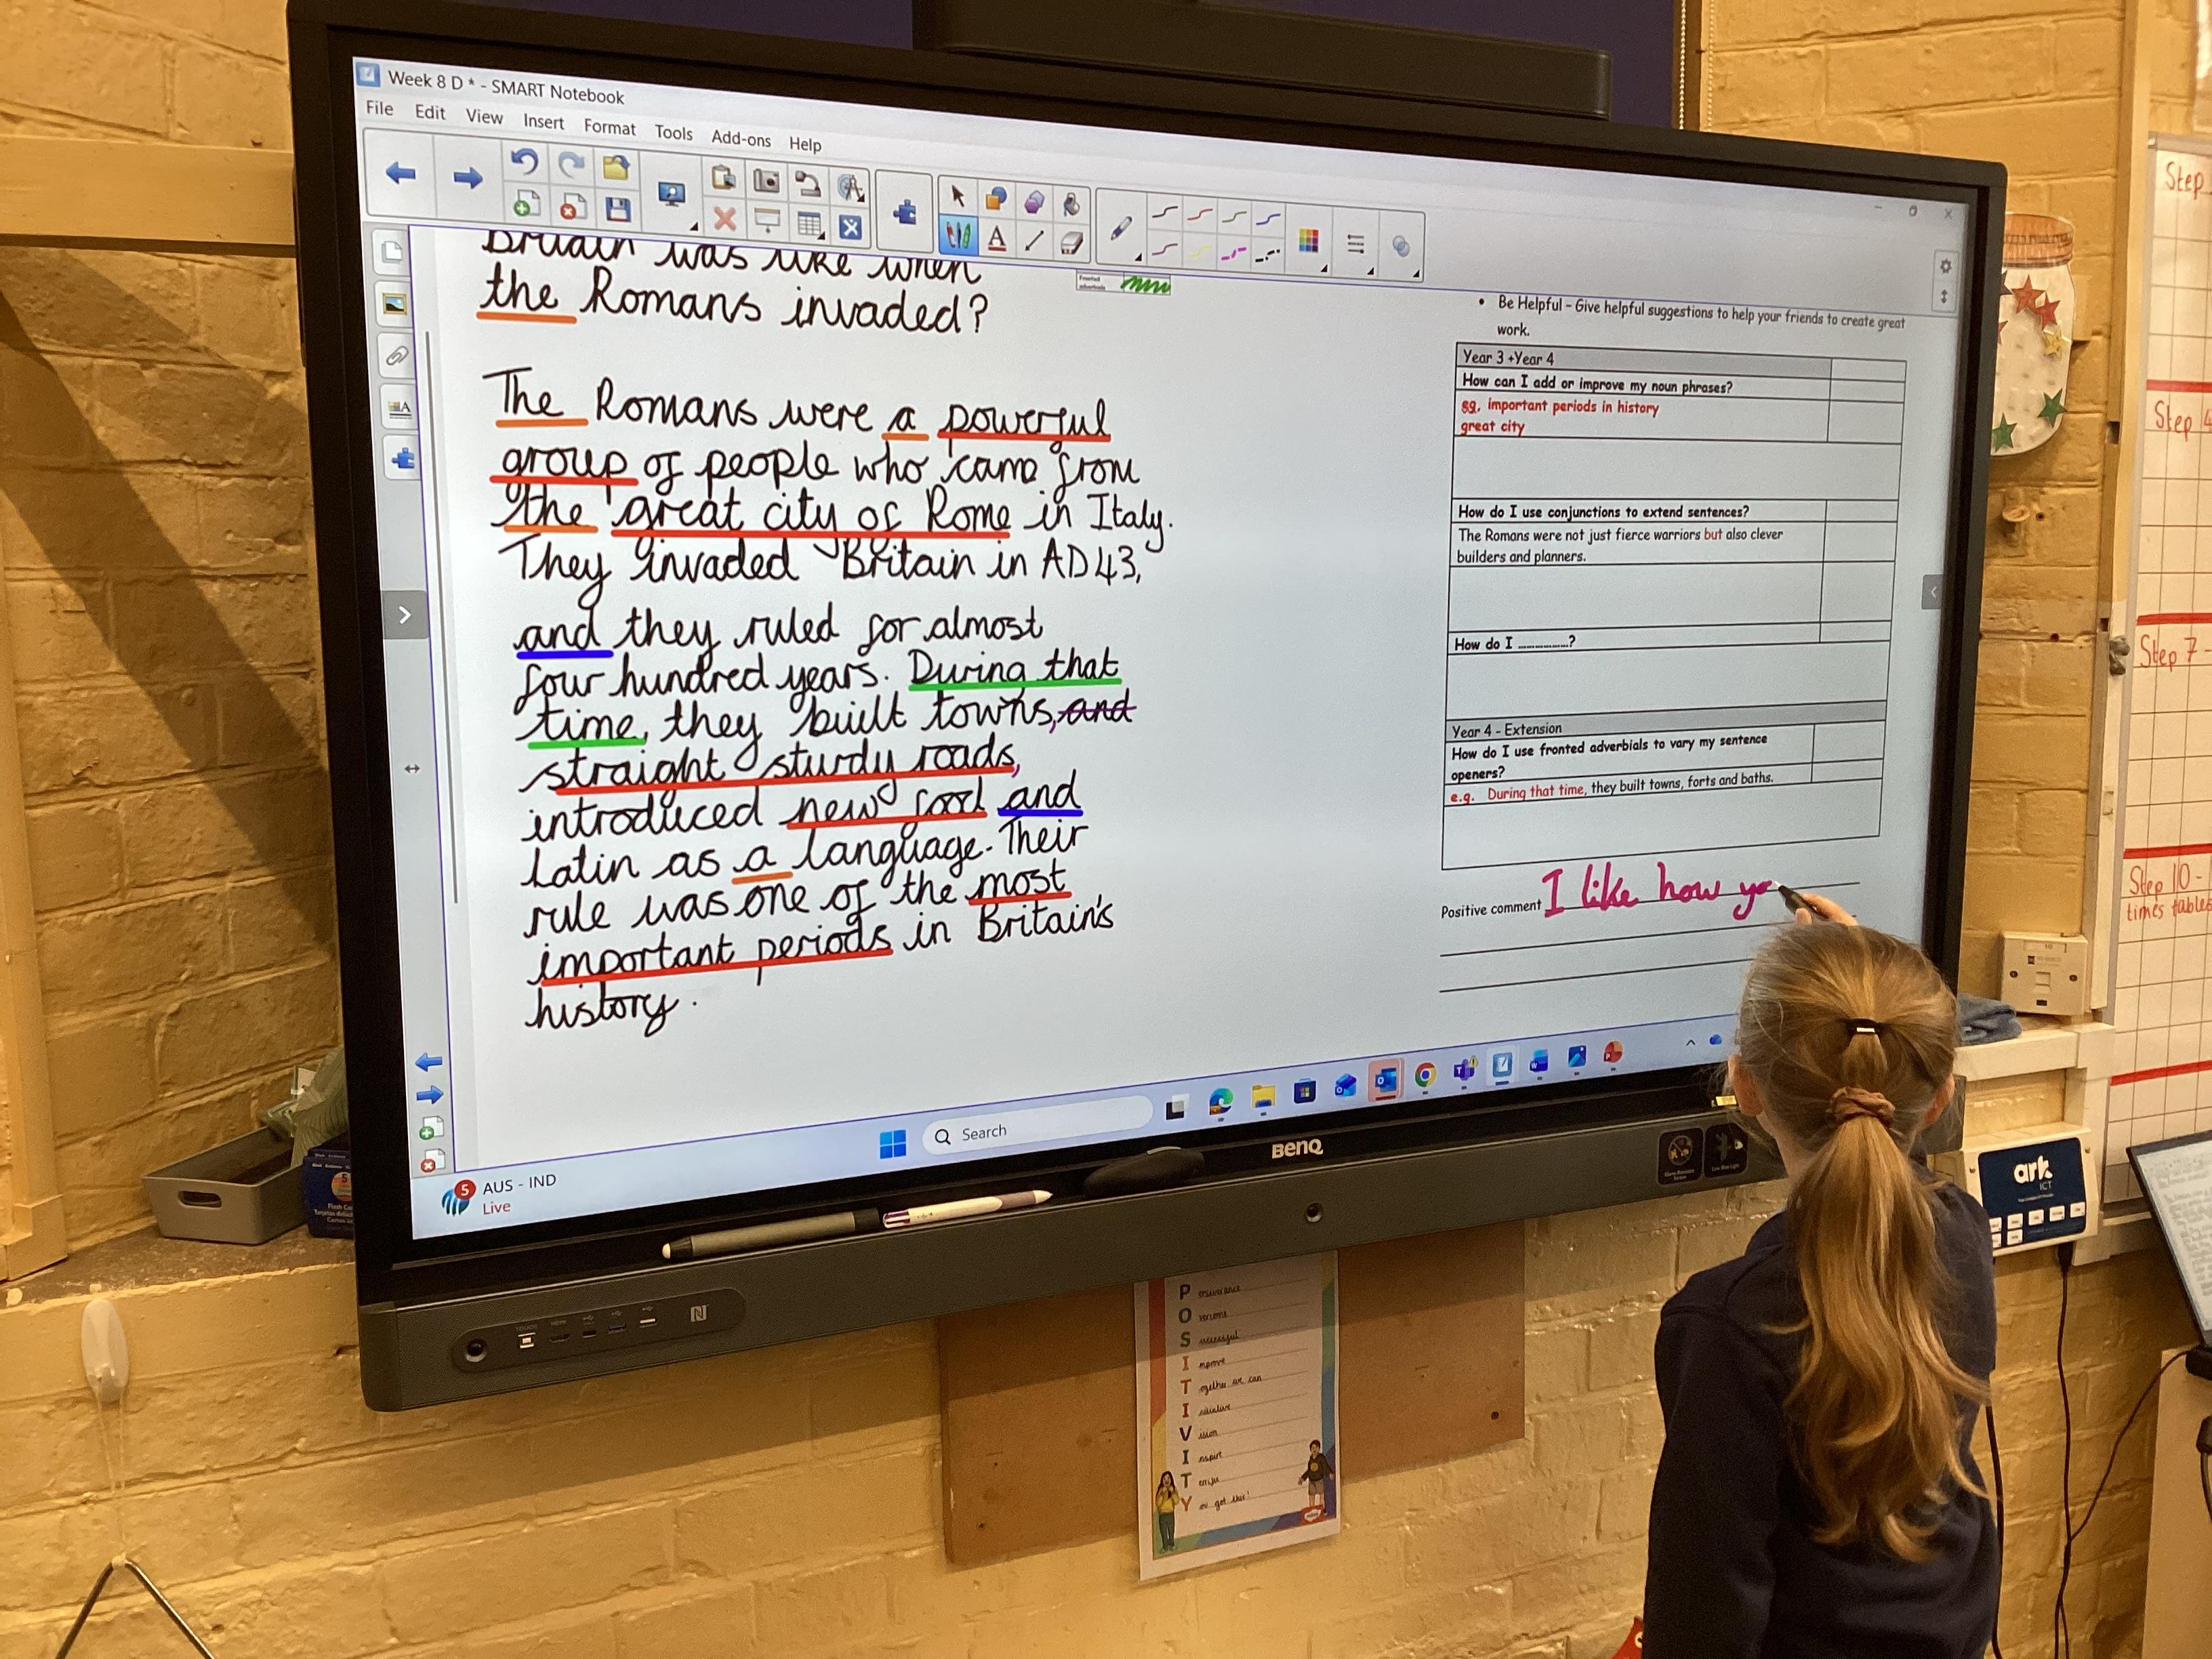 Week 8 D * - SMART Notebook
File Edit View Insert Format Tools Add-ons Help
Britain was like when
the Romans invaded?
The Romans were a powerful
group of people who came from
the great city of Rome in Italy.
They invaded Britain in AD 43,
and they ruled for almost
four hundred years. During that
time, they built towns, and
straight sturdy roads,
introduced new food and
Latin as a language. Their
rule was one of the most
important periods in Britain's
history.
• Be Helpful – Give helpful suggestions to help your friends to create great
work.
Year 3 +Year 4
How can I add or improve my noun phrases?
eg. important periods in history
great city
How do I use conjunctions to extend sentences?
The Romans were not just fierce warriors but also clever
builders and planners.
How do I ...............?
Year 4 - Extension
How do I use fronted adverbials to vary my sentence
openers?
e.g. During that time, they built towns, forts and baths.
Positive comment I like how yo
Search
5 AUS - IND
Live
BenQ
ark
ICT
Step
Step 4
Step 7 -
Step 10 -
times tables
POSITIVITY
Perseverance
Overcome
Successful
Improve
Together we can
Initiative
Vision
Inspire
You got this!